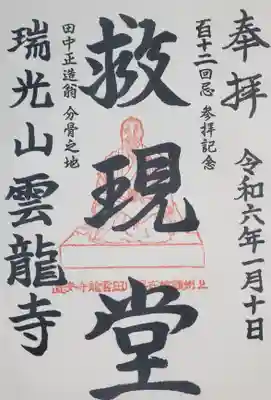 奉拝
令和六年一月十日
百十二回忌 参拝記念
救現堂
田中正造翁 分骨之地
瑞光山雲龍寺